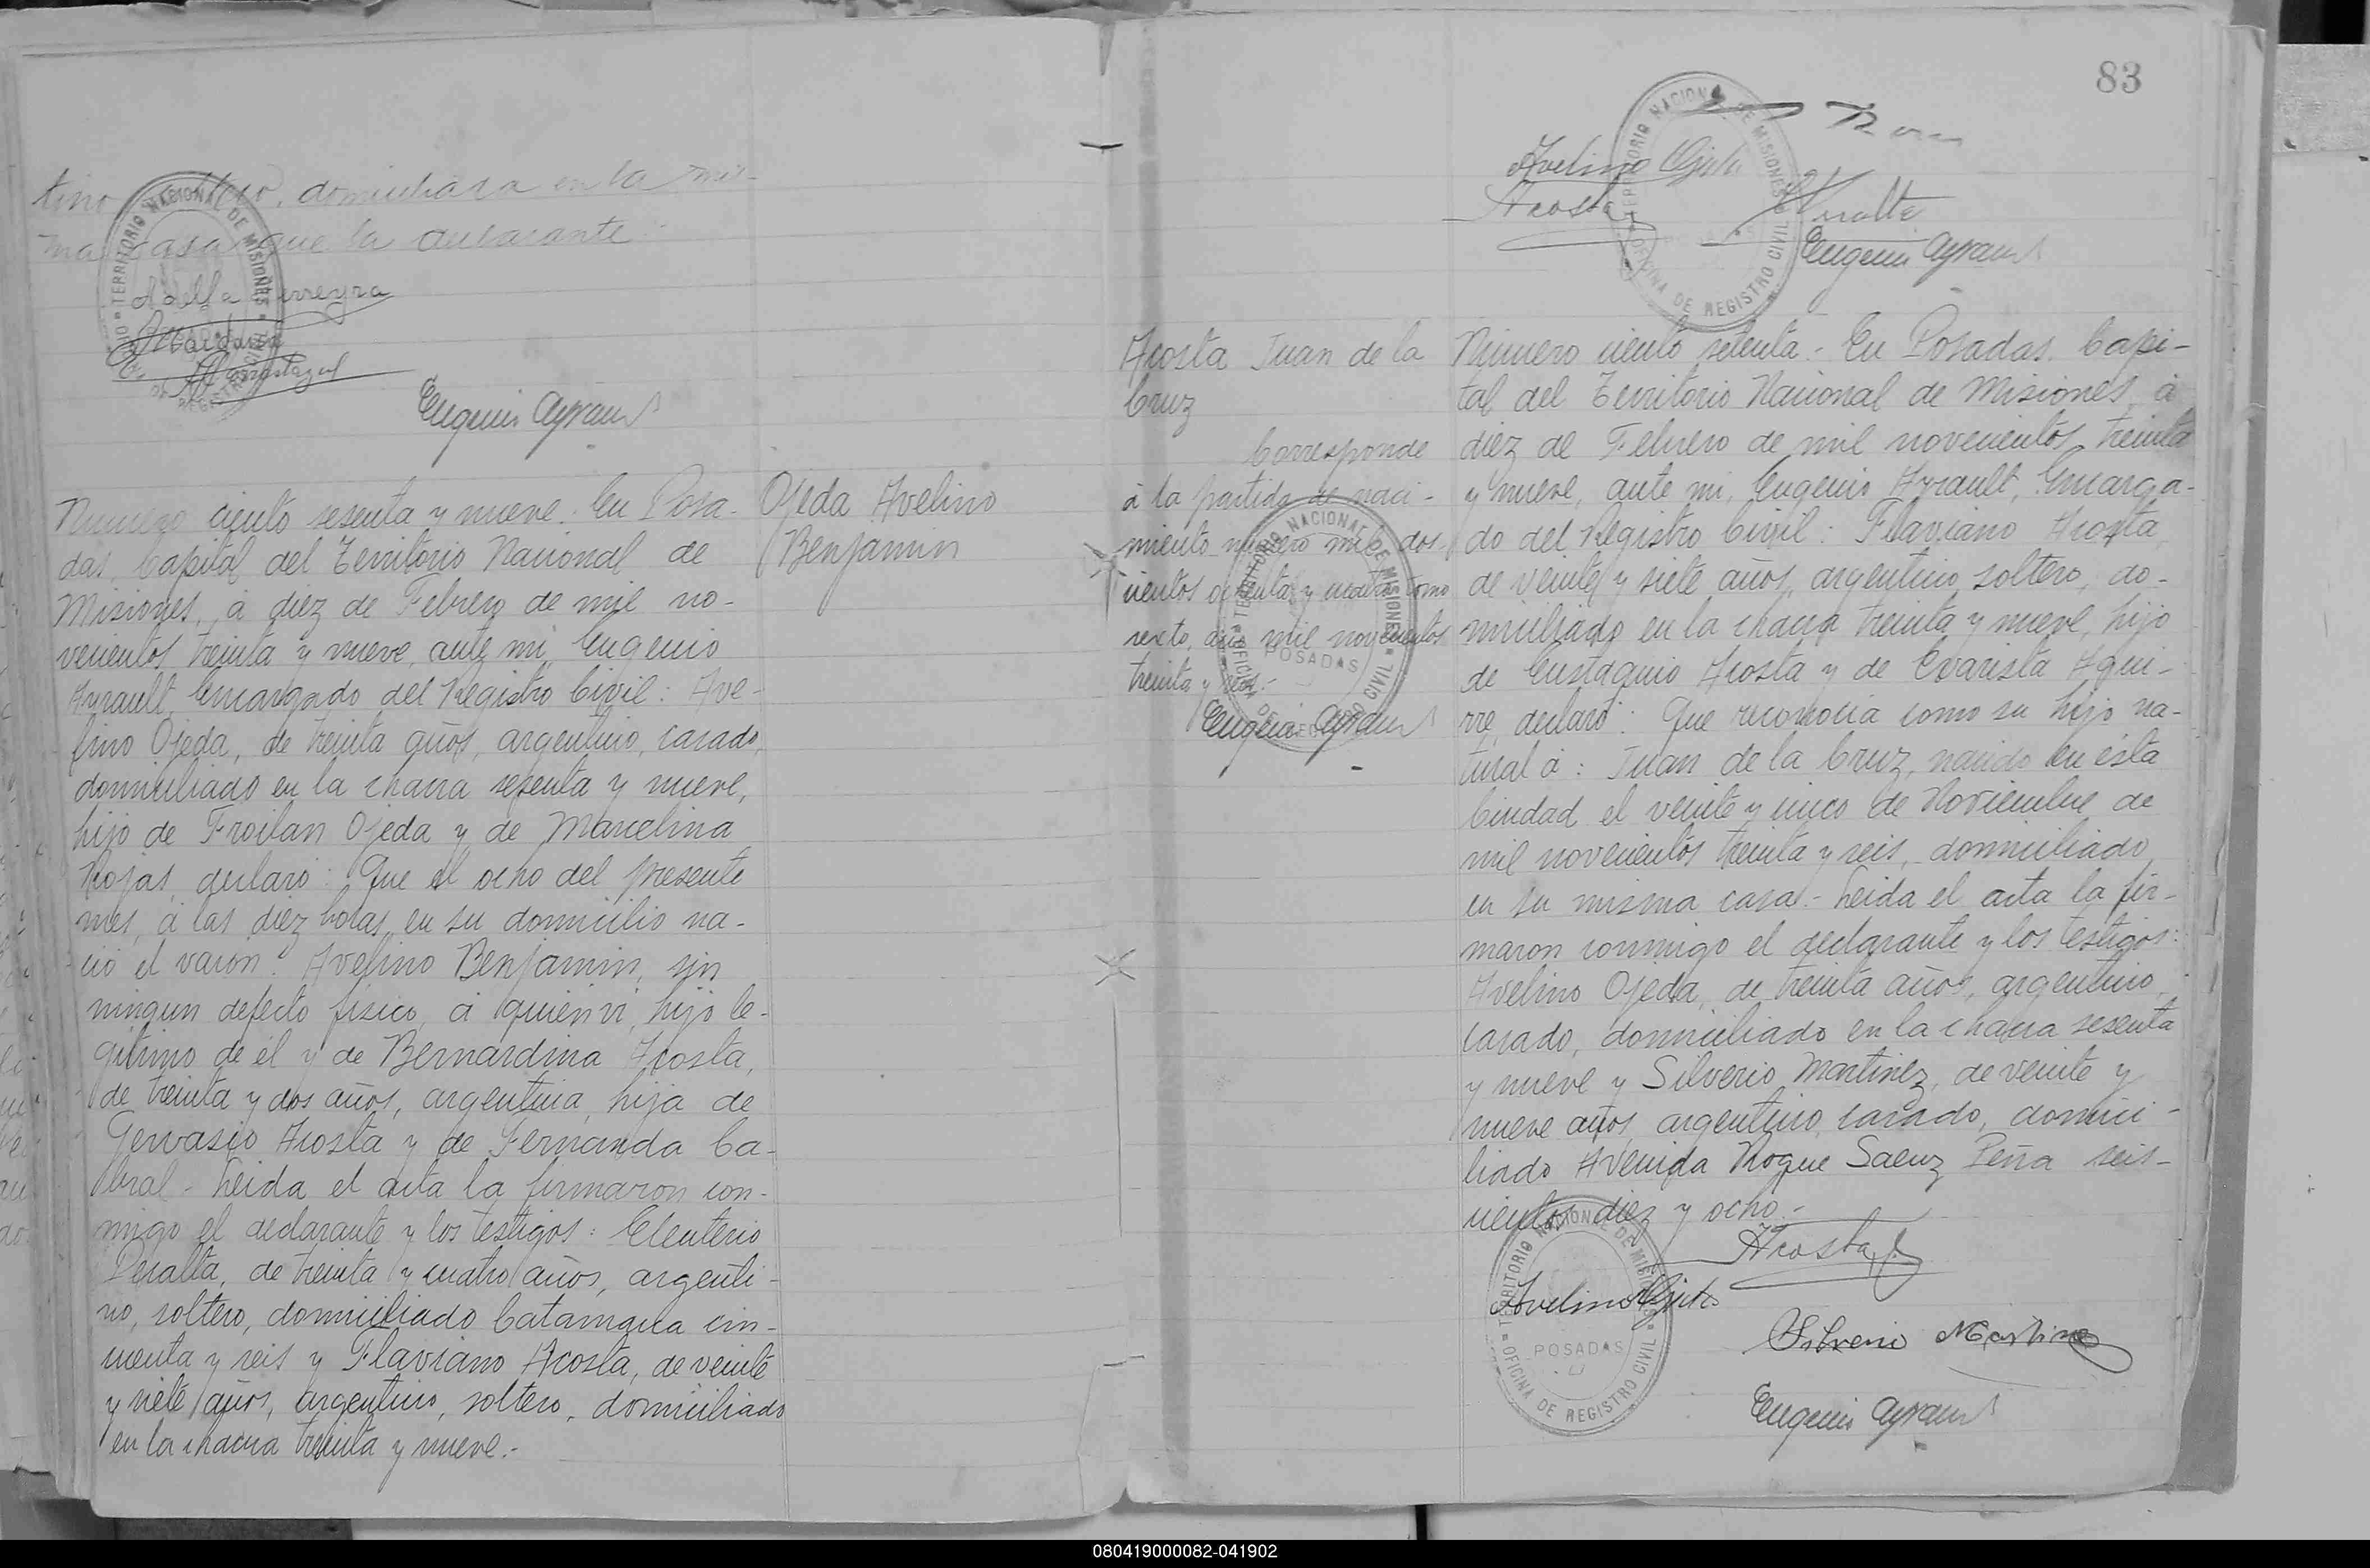 tino soltero, domiciliada en la mis-
ma casa que la declarante.-
Adelfa Ferreyra
Eugenio Ayrault
Numero ciento sesenta y nueve. En Posa-
das, Capital del Territorio Nacional de
Misiones, á diez de Febrero de mil no-
vecientos treinta y nueve, ante mi, Eugenio
Ayrault, Encargado del Registro Civil: Ave-
lino Ojeda, de treinta años, argentino, casado,
domiciliado en la chacra sesenta y nueve,
hijo de Froilan Ojeda y de Marcelina
Rojas, declaró: Que el ocho del presente
mes, á las diez horas, en su domicilio na-
ció el varon: Avelino Benjamin, sin
ningun defecto fisico, á quien vi, hijo le-
gitimo de él y de Bernardina Acosta,
de treinta y dos años, argentina, hija de
Gervasio Acosta y de Fernanda Ca-
bral.- Leida el acta la firmaron con-
migo el declarante y los testigos: Eleuterio
Peralta, de treinta y cuatro años, argenti-
no, soltero, domiciliado Catamarca cin-
cuenta y seis y Flaviano Acosta, de veinte
y siete años, argentino, soltero, domiciliado
en la chacra treinta y nueve.-
Ojeda Avelino
Benjamin
83
Avelino Ojeda
Acosta
Peralta
Eugenio Ayrault
Acosta Juan de la
Cruz
Corresponde
á la partida de naci-
miento numero mil dos-
cientos ochenta y tomo
sexto, año mil novecientos
treinta y seis.-
Eugenio Ayrault
Numero ciento setenta.- En Posadas, Capi-
tal del Territorio Nacional de Misiones, á
diez de Febrero de mil novecientos treinta
y nueve, ante mi, Eugenio Ayrault, Encarga-
do del Registro Civil: Flaviano Acosta,
de veinte y siete años, argentino, soltero, do-
miciliado en la chacra treinta y nueve, hijo
de Eustaquio Acosta y de Evarista Agui-
rre, declaró: Que reconocia como su hijo na-
tural á: Juan de la Cruz, nacido en ésta
Ciudad el veinte y cinco de Noviembre de
mil novecientos treinta y seis, domiciliado
en su misma casa.- Leida el acta la fir-
maron conmigo el declarante y los testigos:
Avelino Ojeda, de treinta años, argentino,
casado, domiciliado en la chacra sesenta
y nueve y Silverio Martinez, de veinte y
nueve años, argentino, casado, domici-
liado Avenida Roque Saenz Peña seis-
cientos diez y ocho.-
Acosta f.
Avelino Ojeda
Silverio Martinez
Eugenio Ayrault
TERRITORIO NACIONAL DE MISIONES
OFICINA DE REGISTRO CIVIL
POSADAS
080419000082-041902